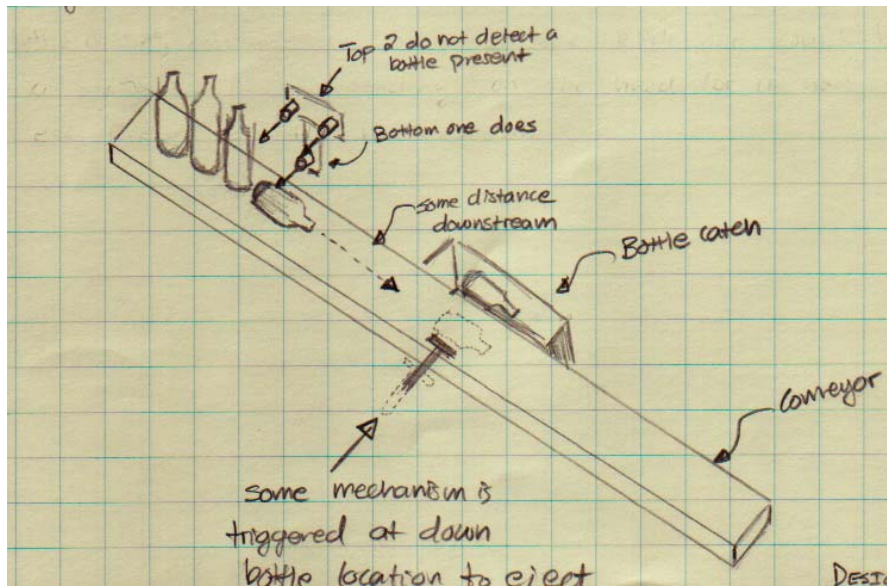 Top 2 do not detect a
bottle present
Bottom one does
some distance
downstream
Bottle catch
Conveyor
some mechanism is
triggered at down
bottle location to eject